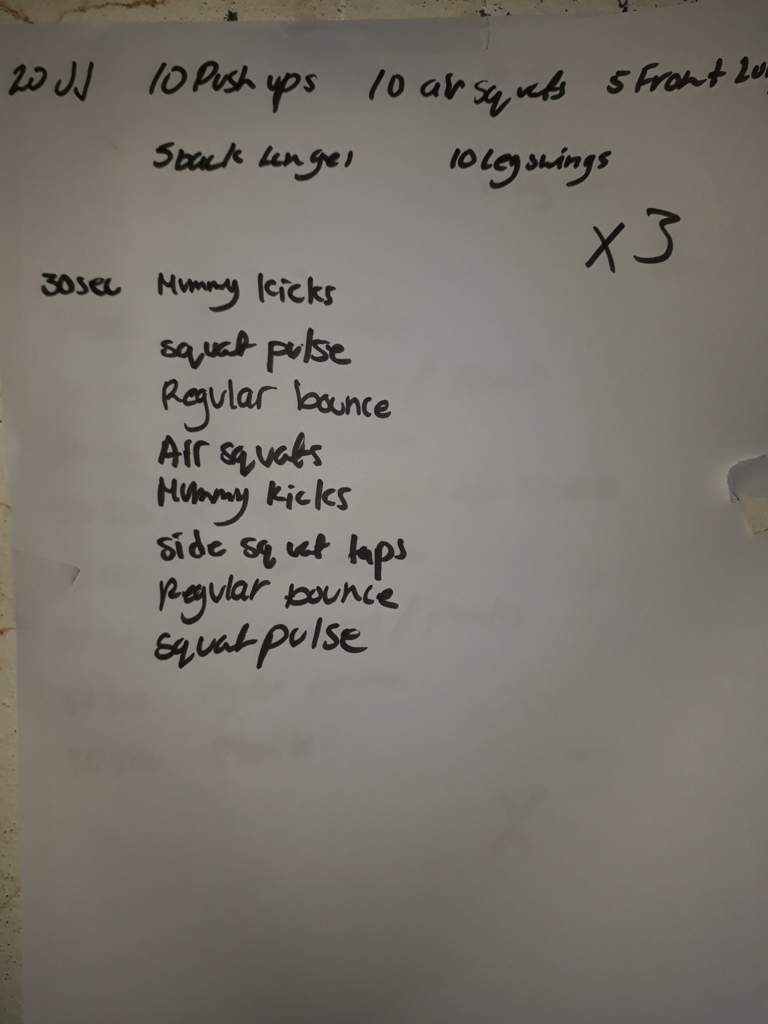 20 JJ 10 Push ups 10 air squats 5 Front
5 back lunges 10 leg swings
x 3
30sec Mummy kicks
squat pulse
Regular bounce
Air squats
Mummy kicks
side squat taps
Regular bounce
squat pulse